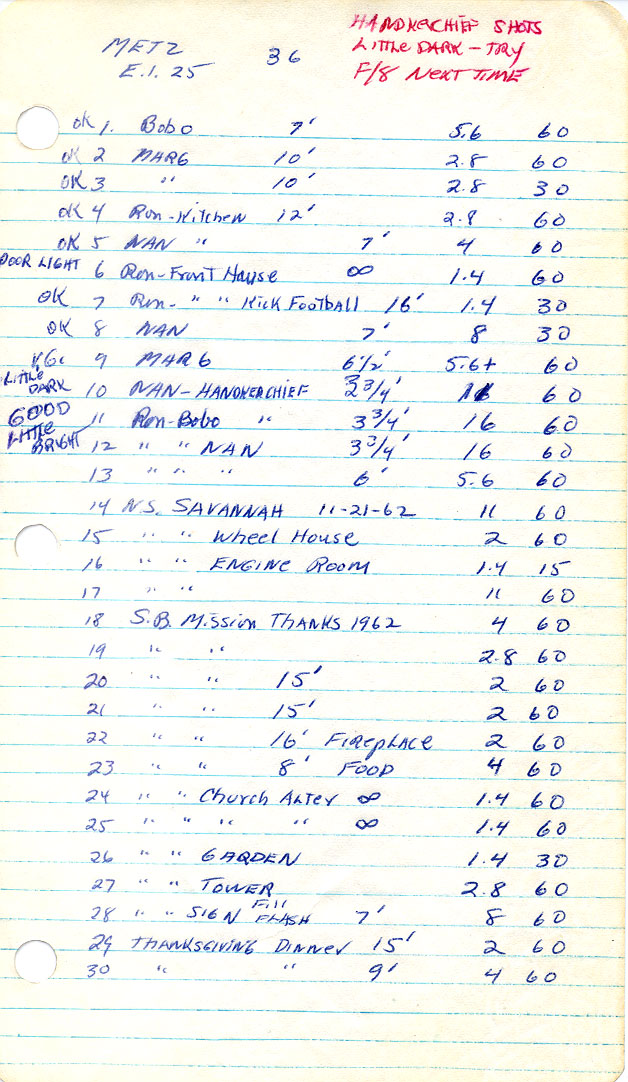 HANDKERCHIEF SHOTS
LITTLE DARK - TRY
F/8 NEXT TIME
METZ 36
E.I. 25
OK 1. Bobo 7' 5.6 60
OK 2 MARG 10' 2.8 60
OK 3 " 10' 2.8 30
OK 4 Ron-Kitchen 12' 2.8 60
OK 5 NAN " 7' 4 60
POOR LIGHT 6 Ron-Front House ∞ 1.4 60
OK 7 Ron- " " Kick Football 16' 1.4 30
OK 8 NAN 7' 8 30
9 MARG 6 1/2' 5.6+ 60
LITTLE DARK 10 NAN-HANDKERCHIEF 3/4' 60
GOOD 11 Ron-Bobo " 3 3/4' 16 60
LITTLE BRIGHT 12 " " NAN 3 3/4' 16 60
13 " " " 6' 5.6 60
14 N.S. SAVANNAH 11-21-62 11 60
15 " " Wheel House 2 60
16 " " ENGINE ROOM 1.4 15
17 " " 11 60
18 S.B. Mission THANKS 1962 4 60
19 " " 2.8 60
20 " " 15' 2 60
21 " " 15' 2 60
22 " " 16' Fireplace 2 60
23 " " 8' FOOD 4 60
24 " " Church Alter ∞ 1.4 60
25 " " " " ∞ 1.4 60
26 " " GARDEN 1.4 30
27 " " TOWER 2.8 60
28 " " SIGN Fill FLASH 7' 8 60
29 THANKSGIVING Dinner 15' 2 60
30 " " 9' 4 60